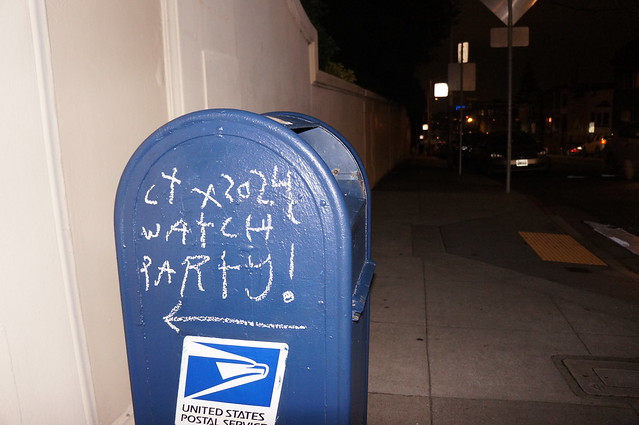 ct x2024
WATCH
PARty!
UNITED STATES
POSTAL SERVICE